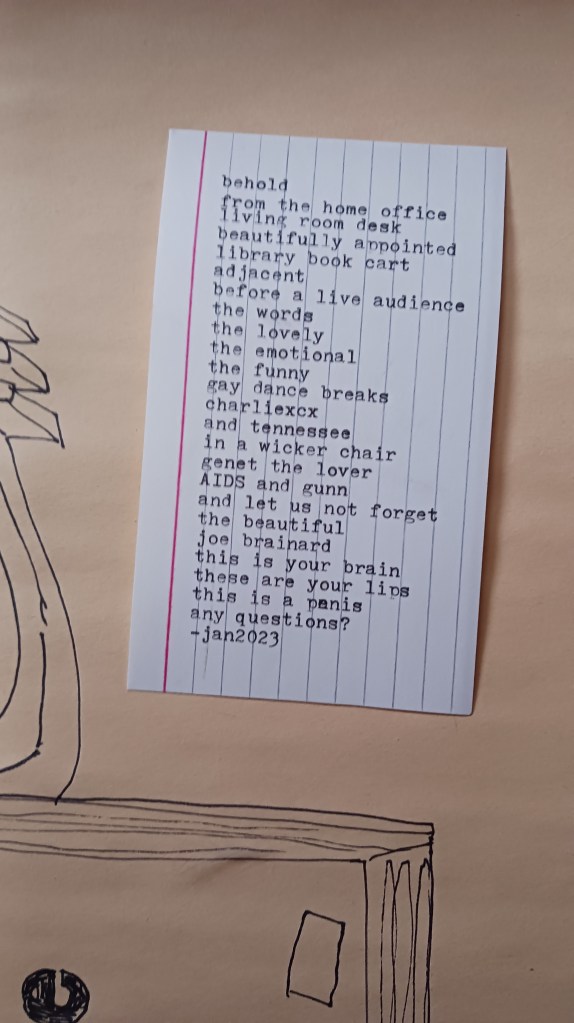 behold
from the home office
living room desk
beautifully appointed
library book cart
adjacent
before a live audience
the words
the lovely
the emotional
the funny
gay dance breaks
charliexcx
and tennessee
in a wicker chair
genet the lover
AIDS and gunn
and let us not forget
the beautiful
joe brainard
this is your brain
these are your lips
this is a penis
any questions?
-jan2023